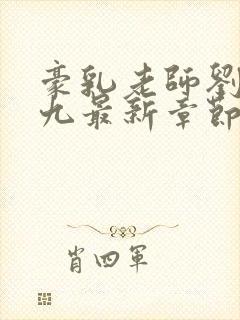 豪乳老師劉
九最新章節
肖四軍